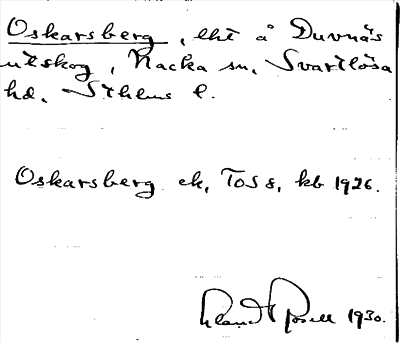 Oskarsberg, lht å Duvnäs
utskog, Nacka sn, Svartlösa
hd, Sthlms l.
Oskarsberg ek, Tos 8, kb 1926.
1930.